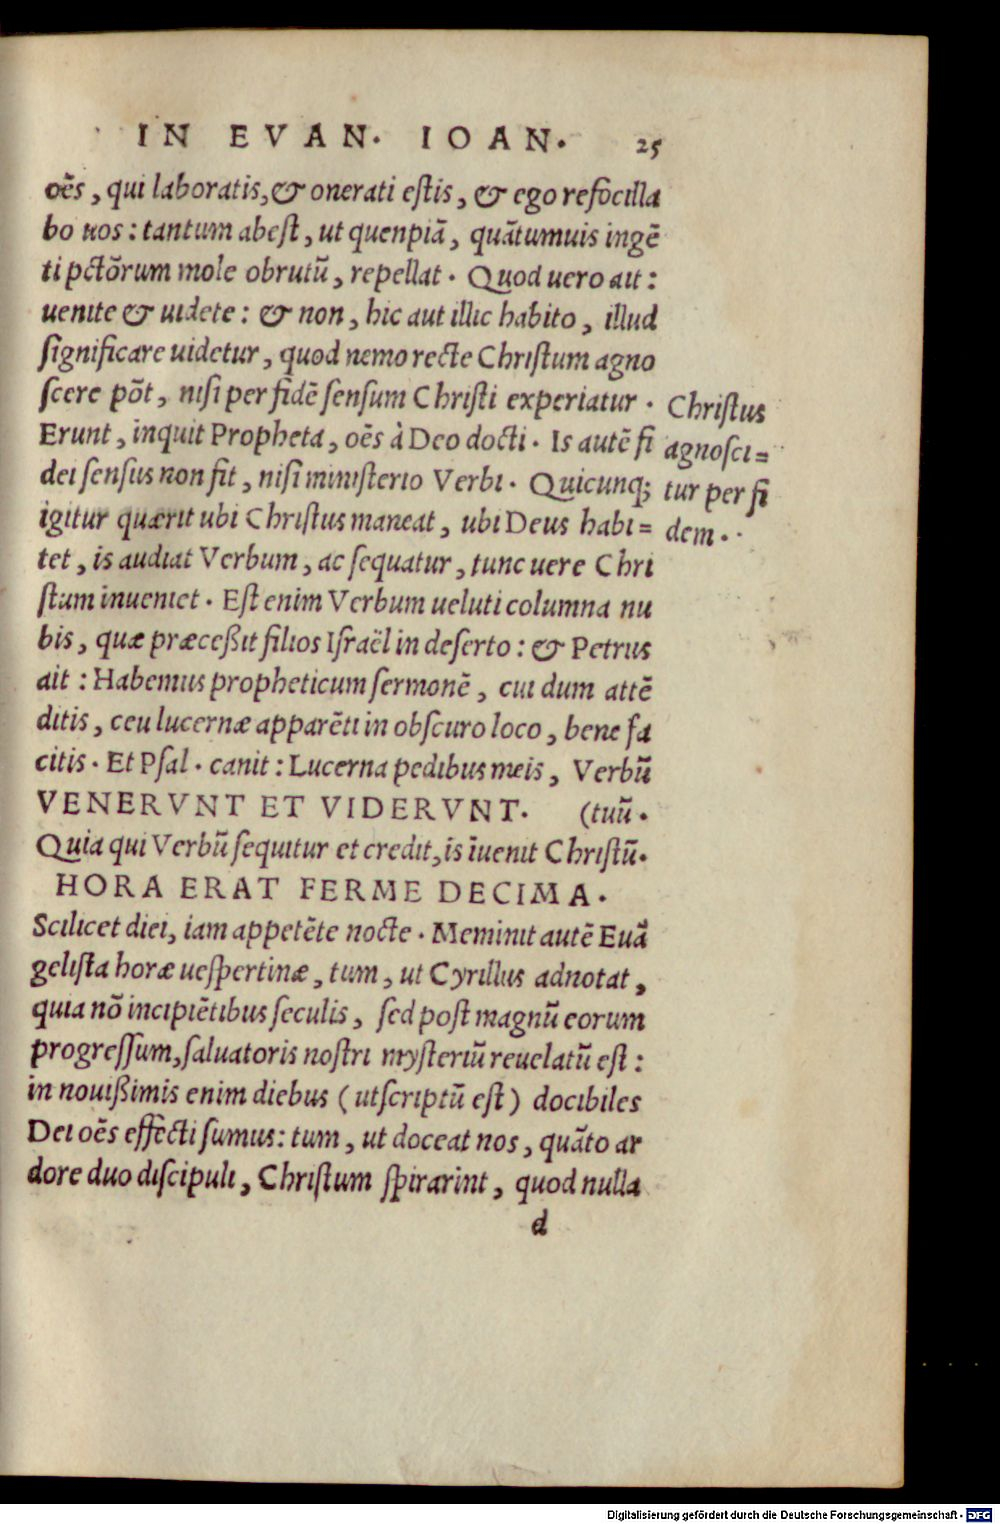 IN EVAN. IOAN. 25
oēs, qui laboratis, & onerati estis, & ego refocilla
bo uos: tantum abest, ut quenpiā, quātumuis ingē
ti pctōrum mole obrutū, repellat. Quod uero ait:
uenite & uidete: & non, hic aut illic habito, illud
significare uidetur, quod nemo recte Christum agno
scere pōt, nisi per fidē sensum Christi experiatur.
Erunt, inquit Propheta, oēs à Deo docti. Is autē fi
dei sensus non fit, nisi ministerio Verbi. Quicunq;
igitur quærit ubi Christus maneat, ubi Deus habi=
tet, is audiat Verbum, ac sequatur, tunc uere Chri
stum inueniet. Est enim Verbum ueluti columna nu
bis, quæ præceßit filios Israël in deserto: & Petrus
ait: Habemus propheticum sermonē, cui dum attē
ditis, ceu lucernæ apparēti in obscuro loco, bene fa
citis. Et Psal. canit: Lucerna pedibus meis, Verbū
VENERVNT ET VIDERVNT. (tuū.
Quia qui Verbū sequitur et credit, is īuenit Christū.
HORA ERAT FERME DECIMA.
Scilicet diei, iam appetēte nocte. Meminit autē Euā
gelista horæ uespertinæ, tum, ut Cyrillus adnotat,
quia nō incipiētibus seculis, sed post magnū eorum
progressum, saluatoris nostri mysteriū reuelatū est:
in nouißimis enim diebus (ut scriptū est) docibiles
Dei oēs effecti sumus: tum, ut doceat nos, quāto ar
dore duo discipuli, Christum spirarint, quod nulla
d
Christus
agnosci=
tur per fi
dem.
Digitalisierung gefördert durch die Deutsche Forschungsgemeinschaft - DFG